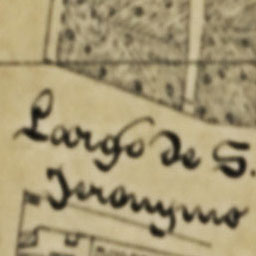 Largo de S.
Jeronymo